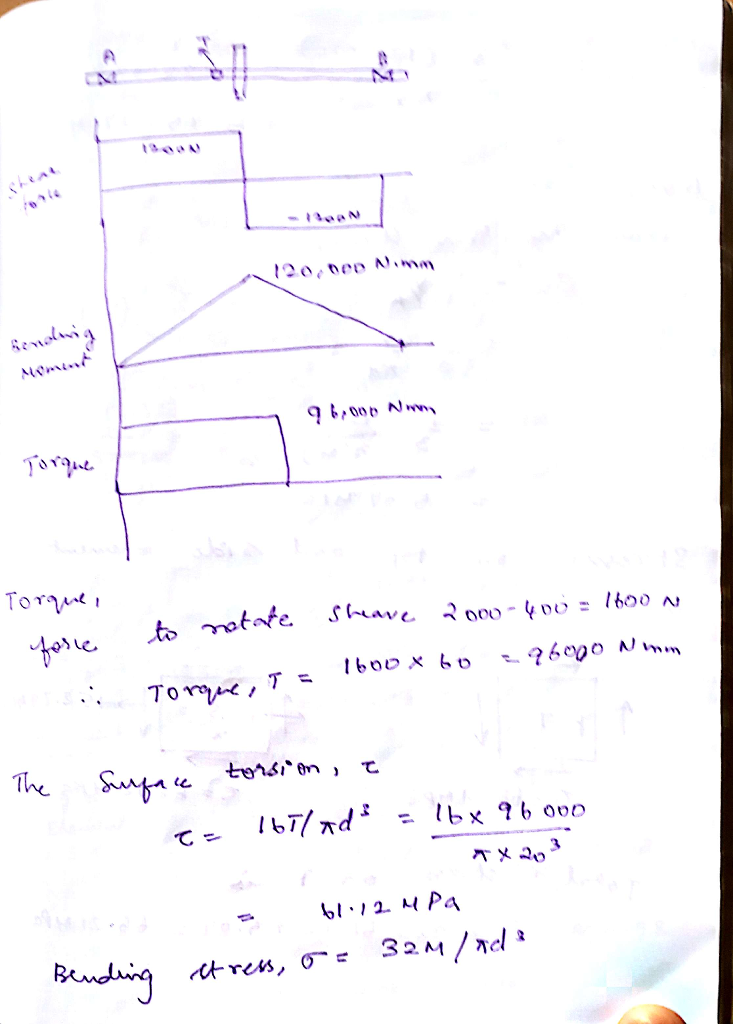 A T B
1200N
Shear
force
- 1200N
120,000 N.mm
Bending
Moment
96,000 Nmm
Torque
Torque,
force to rotate sheave 2000-400 = 1600 N
∴ Torque, T = 1600 x 60 = 96000 Nmm
The Surface torsion, τ
τ = 16T/πd³ = 16 x 96 000
π x 20³
= 61.12 MPa
Bending stress, σ = 32M/πd³